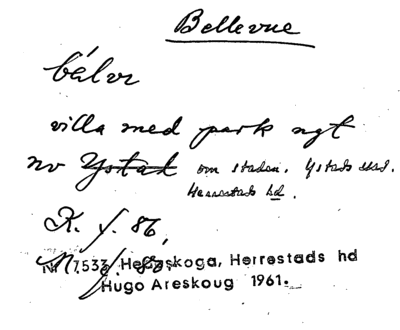 Bellevue
bálvr
villa med park ngt
nv Ystad om staden. Ystads stad.
Herrestads hd.
K. f. 86,
Nr 7533 Hedeskoga, Herrestads hd
Hugo Areskoug 1961.